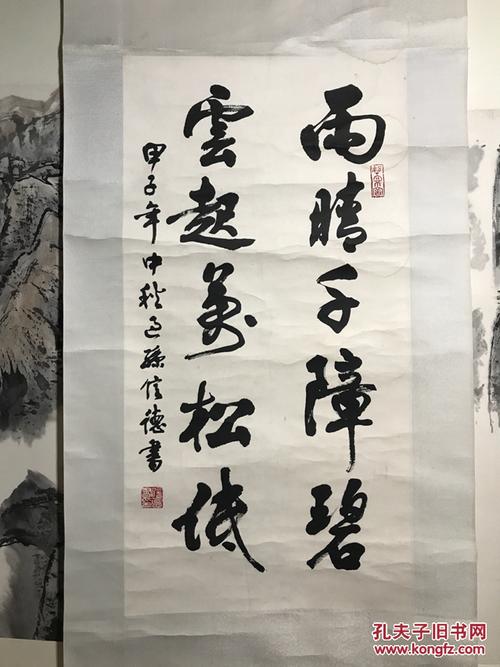 雨晴千障碧
雲起萬松低
甲子年中秋 孫信德書
孔夫子旧书网
www.kongfz.com